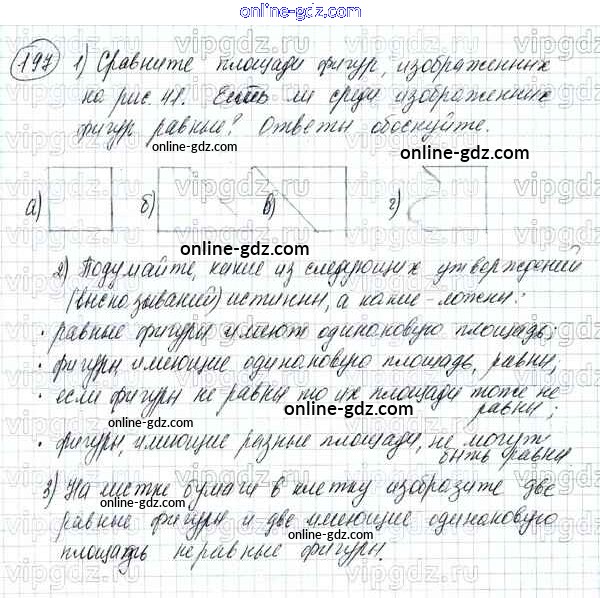 online-gdz.com
197 1) Сравните площади фигур, изображенных
на рис. 41. Есть ли среди изображенных
фигур равные? Ответы обоснуйте.
online-gdz.com
online-gdz.com
а) б) в) г)
online-gdz.com
2) Подумайте, какие из следующих утверждений
(высказываний) истинны, а какие - ложны:
online-gdz.com
· равные фигуры имеют одинаковую площадь;
· фигуры имеющие одинаковую площадь, равны;
· если фигуры не равны то их площади тоже не
равны;
online-gdz.com
· фигуры, имеющие разные площади, не могут
быть равны.
online-gdz.com
3) На листке бумаги в клетку изобразите две
равные фигуры и две имеющие одинаковую
площадь неравные фигуры.
online-gdz.com
vipgdz.ru